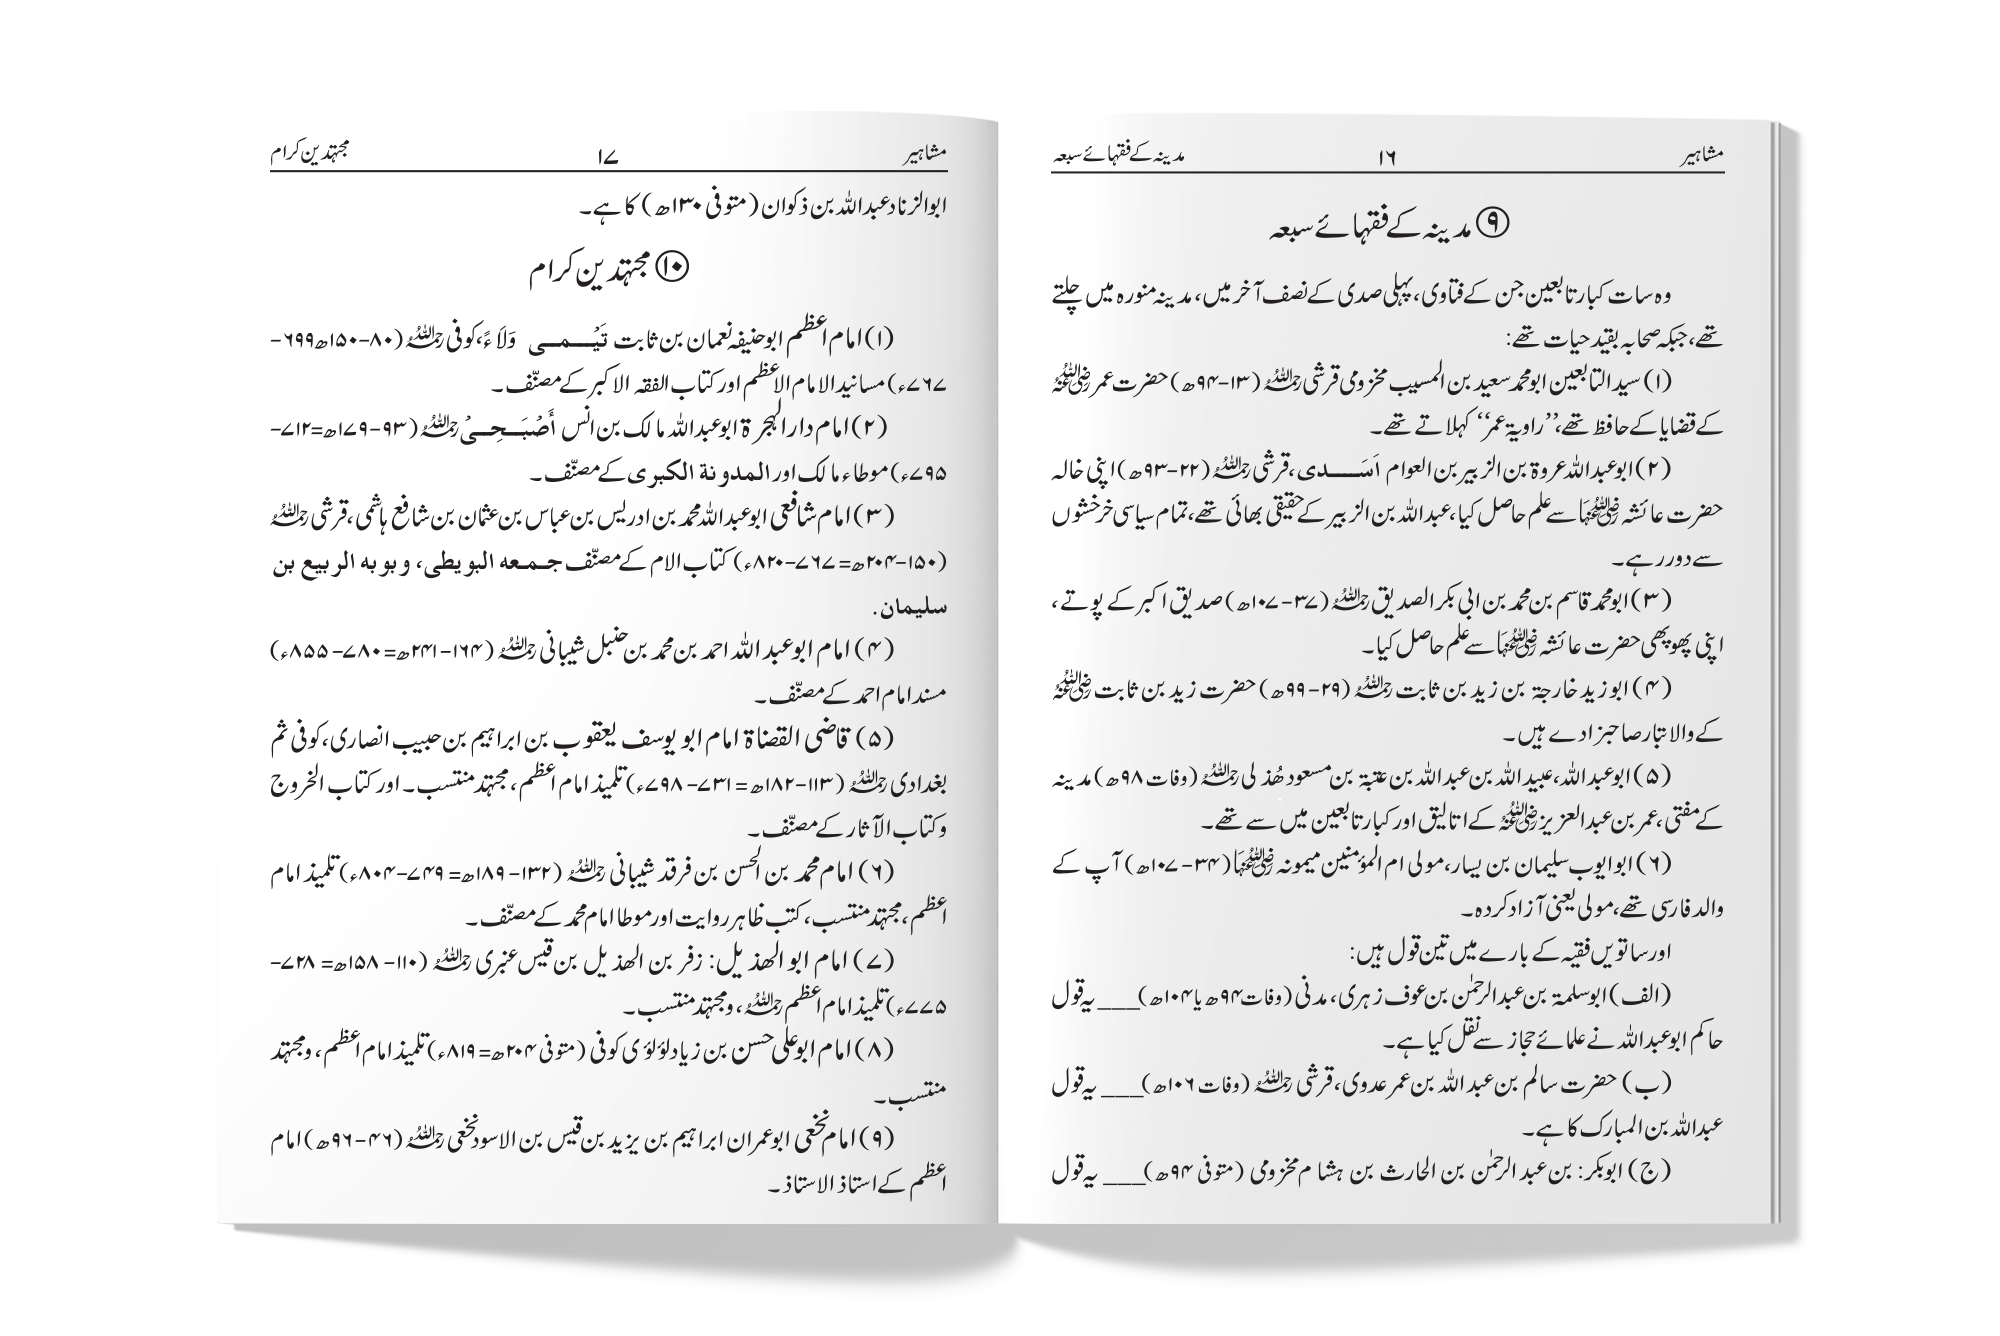 مشاہیر ۱۶ مدینہ کے فقہائے سبعہ
⑨ مدینہ کے فقہائے سبعہ
وہ سات کبار تابعین جن کے فتاوی، پہلی صدی کے نصف آخر میں، مدینہ منورہ میں چلتے
تھے، جبکہ صحابہ بقید حیات تھے:
(۱) سید التابعین ابو محمد سعید بن المسیب مخزومی قرشی رحمہ اللہ (۱۳-۹۴ھ) حضرت عمر رضی اللہ عنہ
کے قضایا کے حافظ تھے، ’’راویۃ عمر‘‘ کہلاتے تھے۔
(۲) ابوعبداللہ عروۃ بن الزبیر بن العوام اَسَدی، قرشی رحمہ اللہ (۲۲-۹۳ھ) اپنی خالہ
حضرت عائشہ رضی اللہ عنہا سے علم حاصل کیا، عبداللہ بن الزبیر کے حقیقی بھائی تھے، تمام سیاسی خرخشوں
سے دور رہے۔
(۳) ابو محمد قاسم بن محمد بن ابی بکر الصدیق رحمہ اللہ (۳۷-۱۰۷ھ) صدیق اکبر کے پوتے،
اپنی پھوپھی حضرت عائشہ رضی اللہ عنہا سے علم حاصل کیا۔
(۴) ابو زید خارجۃ بن زید بن ثابت رحمہ اللہ (۲۹-۹۹ھ) حضرت زید بن ثابت رضی اللہ عنہ
کے والا تبار صاحبزادے ہیں۔
(۵) ابوعبداللہ، عبید اللہ بن عبداللہ بن عتبۃ بن مسعود ھُذلی رحمہ اللہ (وفات ۹۸ھ) مدینہ
کے مفتی، عمر بن عبدالعزیز رضی اللہ عنہ کے اتالیق اور کبار تابعین میں سے تھے۔
(۶) ابو ایوب سلیمان بن یسار، مولی ام المؤمنین میمونہ رضی اللہ عنہا (۳۴-۱۰۷ھ) آپ کے
والد فارسی تھے، مولی یعنی آزاد کردہ۔
اور ساتویں فقیہ کے بارے میں تین قول ہیں:
(الف) ابوسلمۃ بن عبدالرحمٰن بن عوف زہری، مدنی (وفات ۹۴ھ یا ۱۰۴ھ)___ یہ قول
حاکم ابوعبداللہ نے علمائے حجاز سے نقل کیا ہے۔
(ب) حضرت سالم بن عبد اللہ بن عمر عدوی، قرشی رحمہ اللہ (وفات ۱۰۶ھ)___ یہ قول
عبداللہ بن المبارک کا ہے۔
(ج) ابوبکر: بن عبد الرحمٰن بن الحارث بن ہشام مخزومی (متوفی ۹۴ھ)___ یہ قول
مشاہیر ۱۷ مجتہدین کرام
ابوالزناد عبداللہ بن ذکوان (متوفی ۱۳۰ھ) کا ہے۔
⑩ مجتہدین کرام
(۱) امام اعظم ابوحنیفہ نعمان بن ثابت تَیْمی وَلَاءً، کوفی رحمہ اللہ (۸۰-۱۵۰ھ ۶۹۹-
۷۶۷ء) مسانید الامام الاعظم اور کتاب الفقہ الاکبر کے مصنّف۔
(۲) امام دار الہجرۃ ابوعبداللہ مالک بن انس أَصْبَحِیْ رحمہ اللہ (۹۳-۱۷۹ھ=۷۱۲-
۷۹۵ء) موطاء مالک اور المدونة الکبری کے مصنّف۔
(۳) امام شافعی ابوعبداللہ محمد بن ادریس بن عباس بن عثمان بن شافع ہاشمی، قرشی رحمہ اللہ
(۱۵۰-۲۰۴ھ=۷۶۷-۸۲۰ء) کتاب الام کے مصنّف جمعه البویطی، وبوبه الربیع بن
سلیمان.
(۴) امام ابوعبد اللہ احمد بن محمد بن حنبل شیبانی رحمہ اللہ (۱۶۴-۲۴۱ھ=۷۸۰-۸۵۵ء)
مسند امام احمد کے مصنّف۔
(۵) قاضی القضاۃ امام ابو یوسف یعقوب بن ابراہیم بن حبیب انصاری، کوفی ثم
بغدادی رحمہ اللہ (۱۱۳-۱۸۲ھ=۷۳۱-۷۹۸ء) تلمیذ امام اعظم، مجتہد منتسب۔ اور کتاب الخروج
وکتاب الآثار کے مصنّف۔
(۶) امام محمد بن الحسن بن فرقد شیبانی رحمہ اللہ (۱۳۲-۱۸۹ھ=۷۴۹-۸۰۴ء) تلمیذ امام
اعظم، مجتہد منتسب، کتب ظاہر روایت اور موطا امام محمد کے مصنّف۔
(۷) امام ابو الھذیل: زفر بن الھذیل بن قیس عنبری رحمہ اللہ (۱۱۰-۱۵۸ھ=۷۲۸-
۷۷۵ء) تلمیذ امام اعظم رحمہ اللہ، ومجتہد منتسب۔
(۸) امام ابوعلی حسن بن زیاد لؤلؤی کوفی (متوفی ۲۰۴ھ=۸۱۹ء) تلمیذ امام اعظم، ومجتہد
منتسب۔
(۹) امام نخعی ابوعمران ابراہیم بن یزید بن قیس بن الاسود نخعی رحمہ اللہ (۴۶-۹۶ھ) امام
اعظم کے استاذ الاستاذ۔